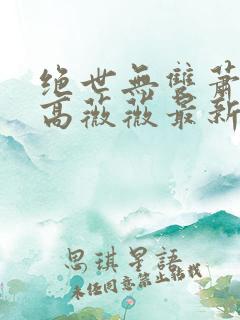 绝世無雙蕭
高薇薇最新
思琪星語
未經同意禁止轉載